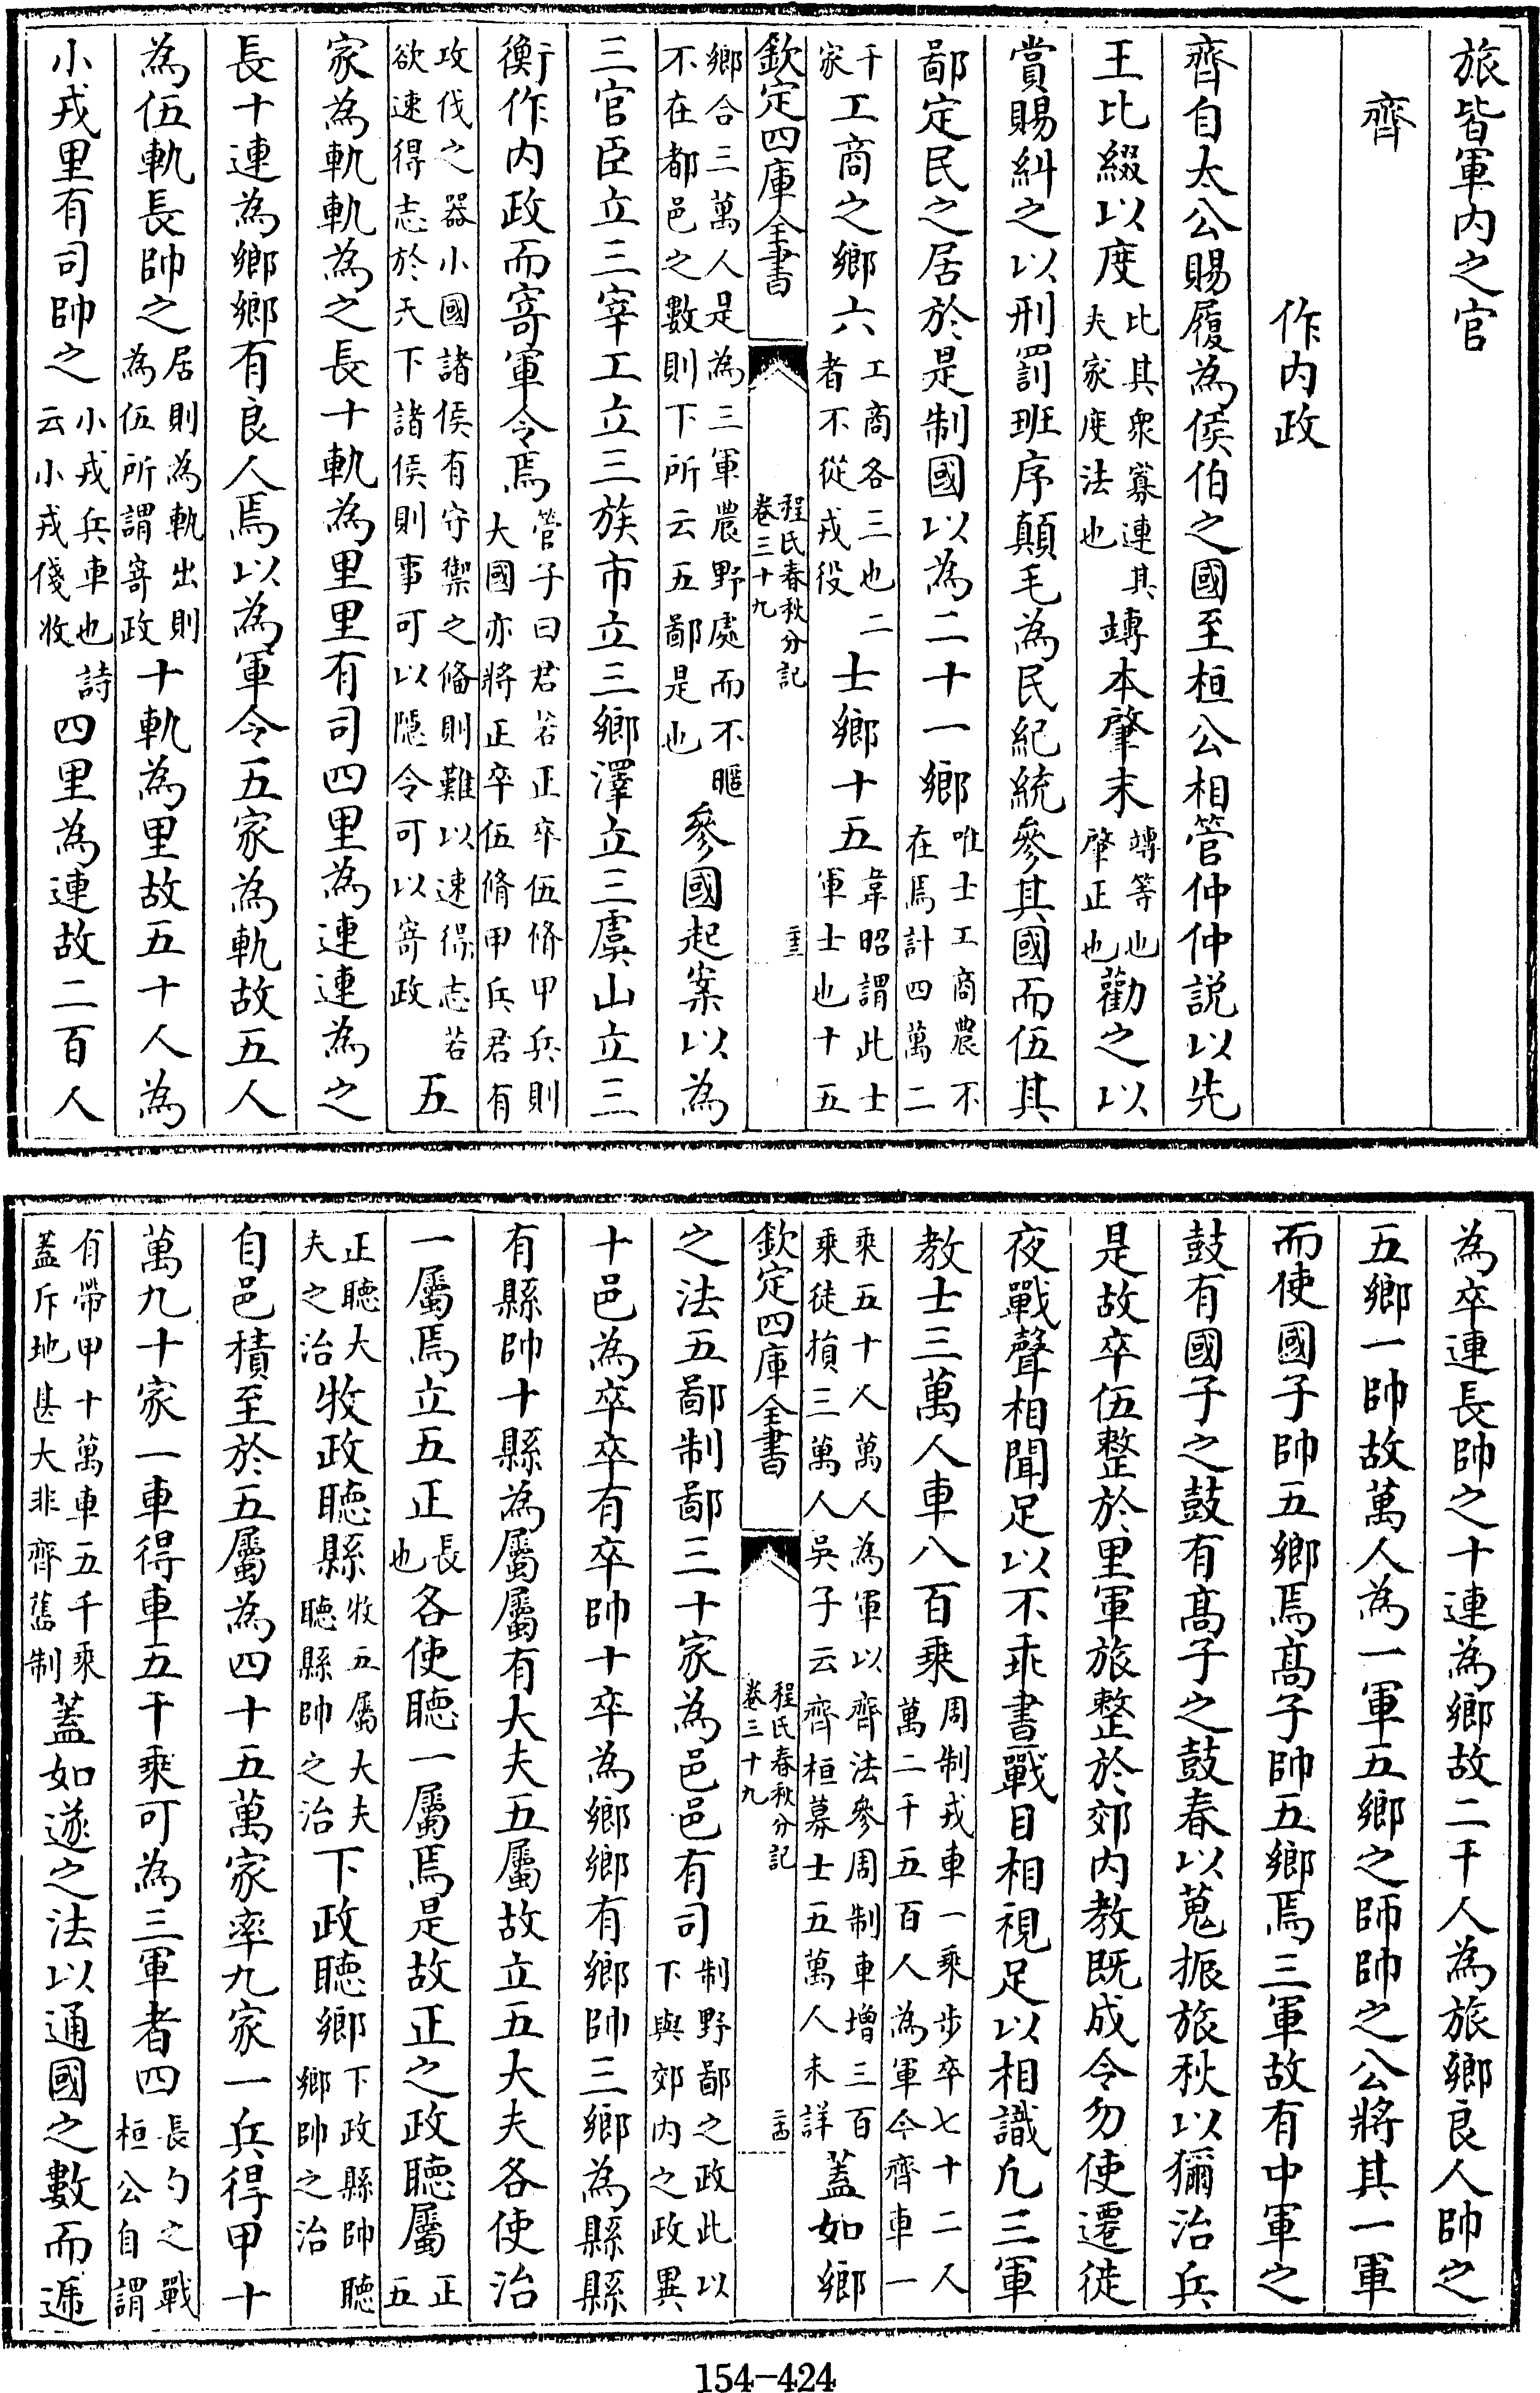 旅皆軍内之官
齊
作内政
齊自太公賜履為侯伯之國至桓公相管仲仲説以先
王比綴以度比其衆寡連其夫家度法也竱本肇末竱等也肇正也勸之以
賞賜糾之以刑罰班序顛毛為民紀統參其國而伍其
鄙定民之居於是制國以為二十一鄉唯士工商農不在焉計四萬二
千家工商之鄉六工商各三也二者不從戎役士鄉十五韋昭謂此士軍士也十五
欽定四庫全書
程氏春秋分記
卷三十九
鄉合三萬人是為三軍農野處而不暱不在都邑之數則下所云五鄙是也參國起案以為
三官臣立三宰工立三族市立三鄉澤立三虞山立三
衡作内政而寄軍令焉管子曰君若正卒伍脩甲兵則大國亦將正卒伍脩甲兵君有
攻伐之器小國諸侯有守禦之備則難以速得志若欲速得志於天下諸侯則事可以隱令可以寄政五
家為軌軌為之長十軌為里里有司四里為連連為之
長十連為鄉鄉有良人焉以為軍令五家為軌故五人
為伍軌長帥之居則為軌出則為伍所謂寄政十軌為里故五十人為
小戎里有司帥之小戎兵車也詩云小戎俴收四里為連故二百人
為卒連長帥之十連為鄉故二千人為旅鄉良人帥之
五鄉一帥故萬人為一軍五鄉之師帥之公將其一軍
而使國子帥五鄉焉髙子帥五鄉焉三軍故有中軍之
鼓有國子之鼓有髙子之鼓春以蒐振旅秋以獮治兵
是故卒伍整於里軍旅整於郊内教既成令勿使遷徙
夜戰聲相聞足以不乖晝戰目相視足以相識凡三軍
教士三萬人車八百乗周制戎車一乗步卒七十二人萬二千五百人為軍今齊車一
乗五十人萬人為軍以齊法參周制車増三百乗徒損三萬人吳子云齊桓募士五萬人未詳蓋如鄉
欽定四庫全書
程氏春秋分記
卷三十九
之法五鄙制鄙三十家為邑邑有司制野鄙之政此以下與郊内之政異
十邑為卒卒有卒帥十卒為鄉鄉有鄉帥三鄉為縣縣
有縣帥十縣為屬屬有大夫五屬故立五大夫各使治
一屬焉立五正長也各使聽一屬焉是故正之政聽屬正五
正聽大夫之治牧政聽縣牧五屬大夫聽縣帥之治下政聽鄉下政縣帥聽鄉帥之治
自邑積至於五屬為四十五萬家率九家一兵得甲十
萬九十家一車得車五千乗可為三軍者四長勺之戰桓公自謂
有帶甲十萬車五千乘蓋斥地甚大非齊舊制蓋如遂之法以通國之數而遞
154-424